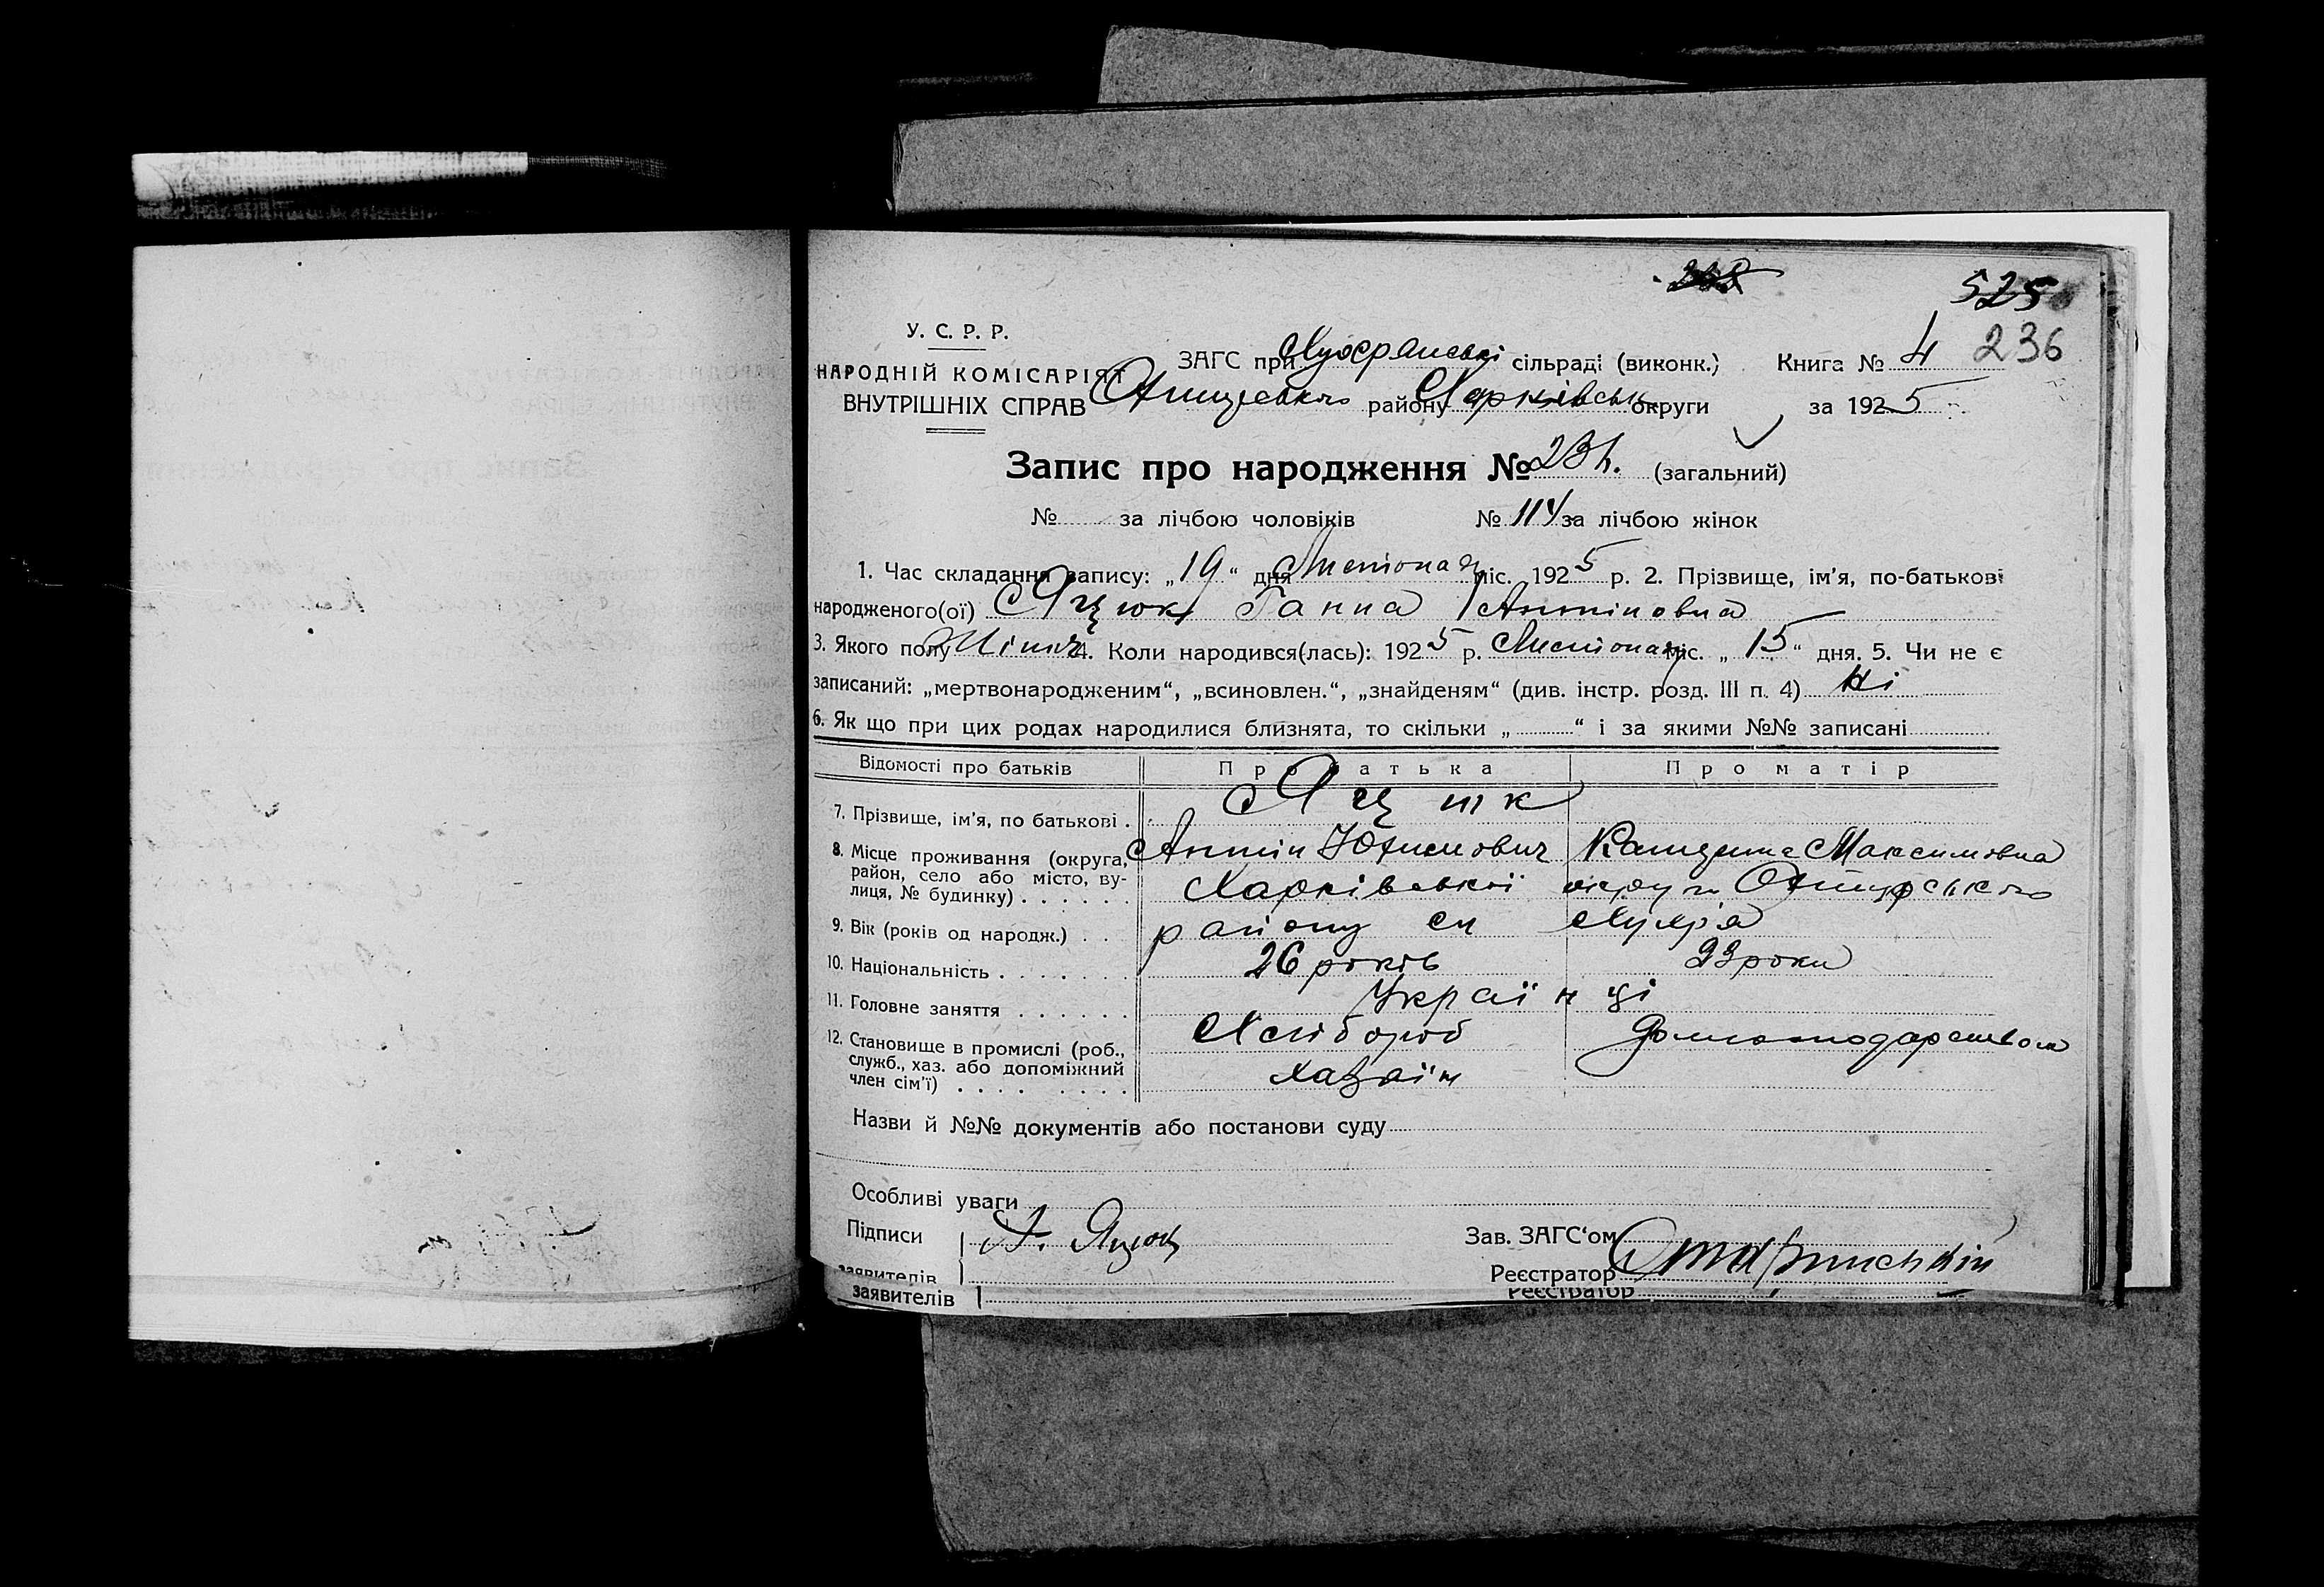 525
236
У. С. Р. Р.
НАРОДНІЙ КОМІСАРІЯТ
ВНУТРІШНІХ СПРАВ
ЗАГС при сільраді (виконк.) Книга № 4
району Харківськ округи за 1925
Запис про народження № 234. (загальний)
№ за лічбою чоловіків № 114 за лічбою жінок
1. Час складання запису: „19“ дня Листопад міс. 1925 р. 2. Прізвище, ім'я, по-батькові
народженого(ої) Яцюк Ганна Антіновна
3. Якого полу Жіноч 4. Коли народився(лась): 1925 р. Листопад міс. „15“ дня. 5. Чи не є
записаний: „мертвонародженим“, „всиновлен.“, „знайденям“ (див. інстр. розд. III п. 4) Ні
6. Як що при цих родах народилися близнята, то скільки „ “ і за якими №№ записані
Відомості про батьків Про батька Про матір
7. Прізвище, ім'я, по батькові . Яцюк
8. Місце проживання (округа, район, село або місто, вулиця, № будинку) . . . . . . Антін Юхимович Максимовна
Харківської округи
9. Вік (років од народж.) . . району
10. Національність . . . . . . . 26 років 23 роки
11. Головне заняття . . . . . . Українці
12. Становище в промислі (роб., служб., хаз. або допоміжний член сім'ї) . . . . . . . . Хлібороб
Хазяїн
Назви й №№ документів або постанови суду
Особливі уваги
Підписи А. Яцюк Зав. ЗАГС'ом
заявителів Реєстратор
заявителів Реєстратор